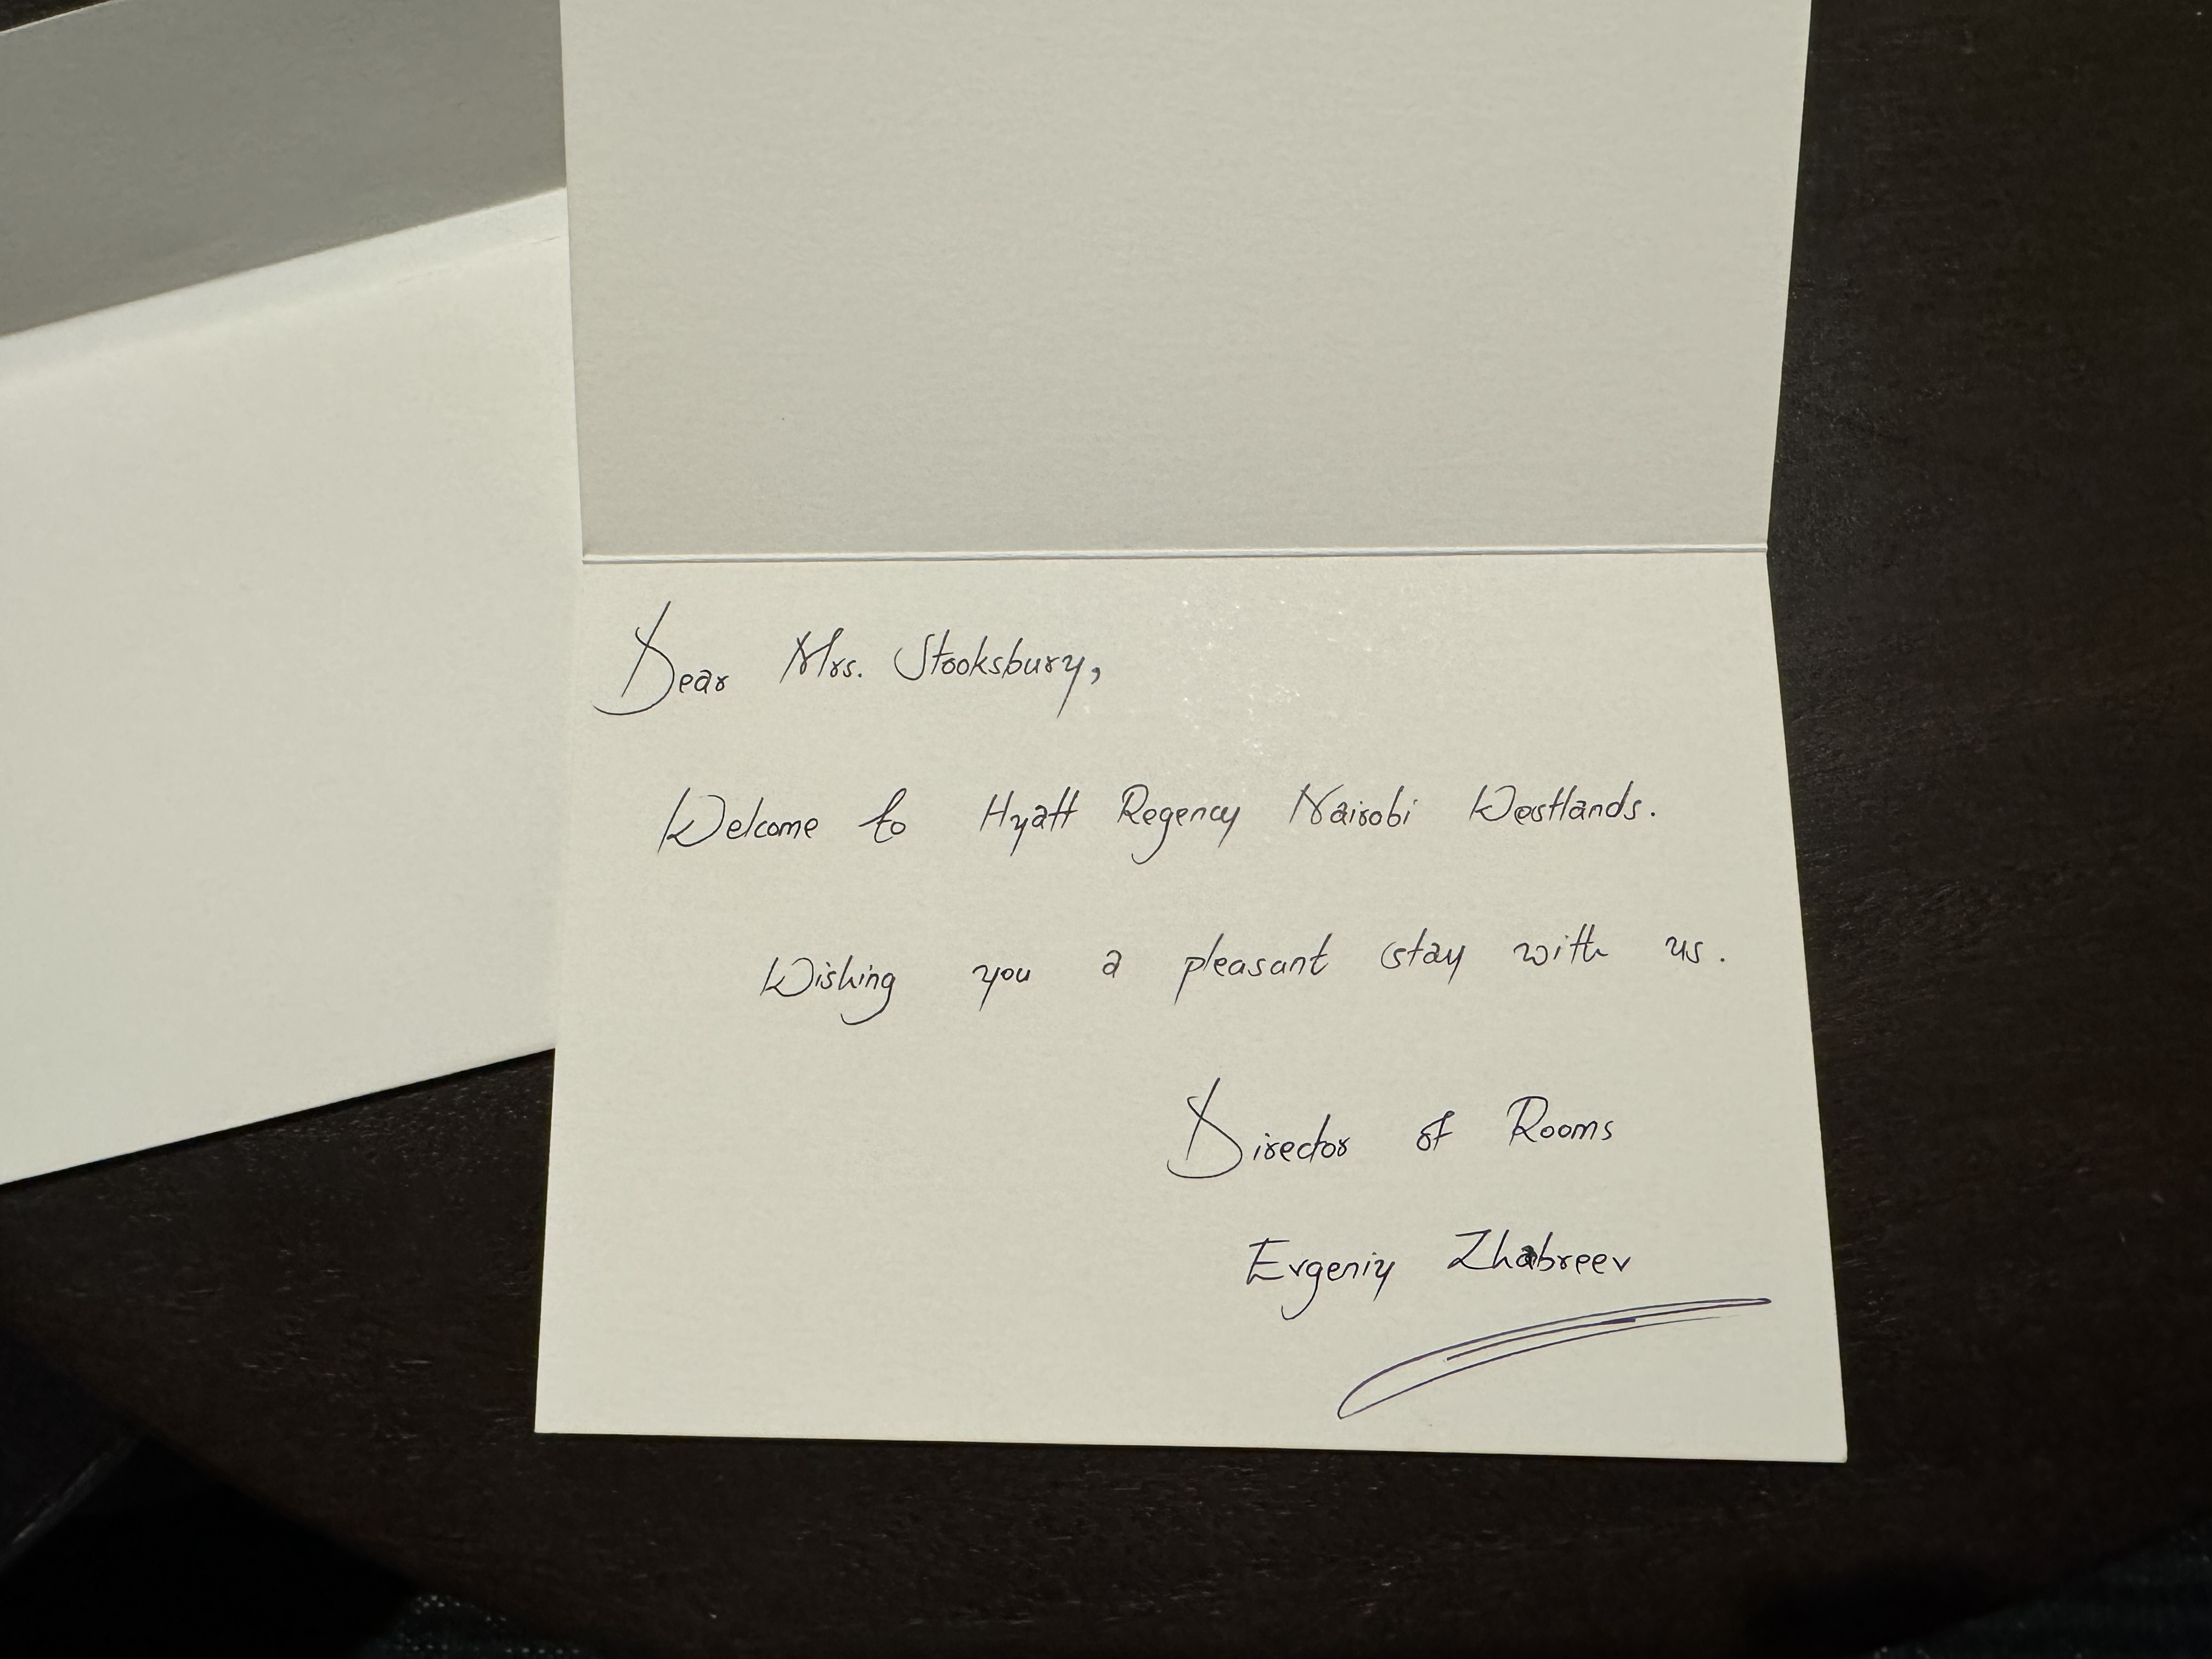 Dear Mrs. Stooksbury,
Welcome to Hyatt Regency Nairobi Westlands.
Wishing you a pleasant stay with us.
Director of Rooms
Evgeniy Zhabreev